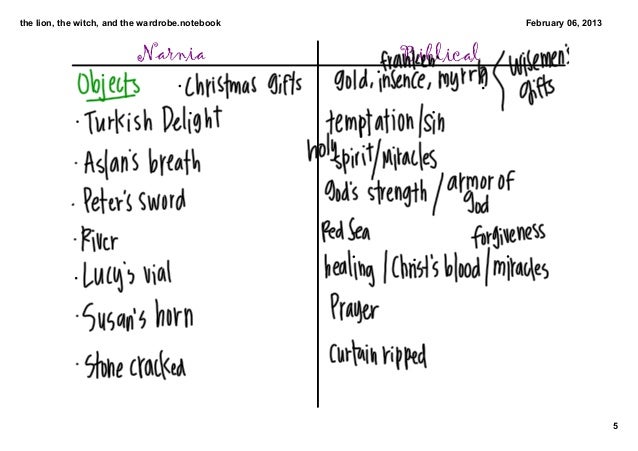 the lion, the witch, and the wardrobe.notebook
February 06, 2013
Narnia
Biblical
Objects · Christmas gifts
franken
gold, insence, myrrh < wisemen's gifts
· Turkish Delight
temptation/sin
· Aslan's breath
holy spirit/Miracles
· Peter's sword
god's strength / armor of god
· River
Red Sea
forgiveness
· Lucy's vial
healing / Christ's blood / miracles
· Susan's horn
Prayer
· Stone cracked
Curtain ripped
5